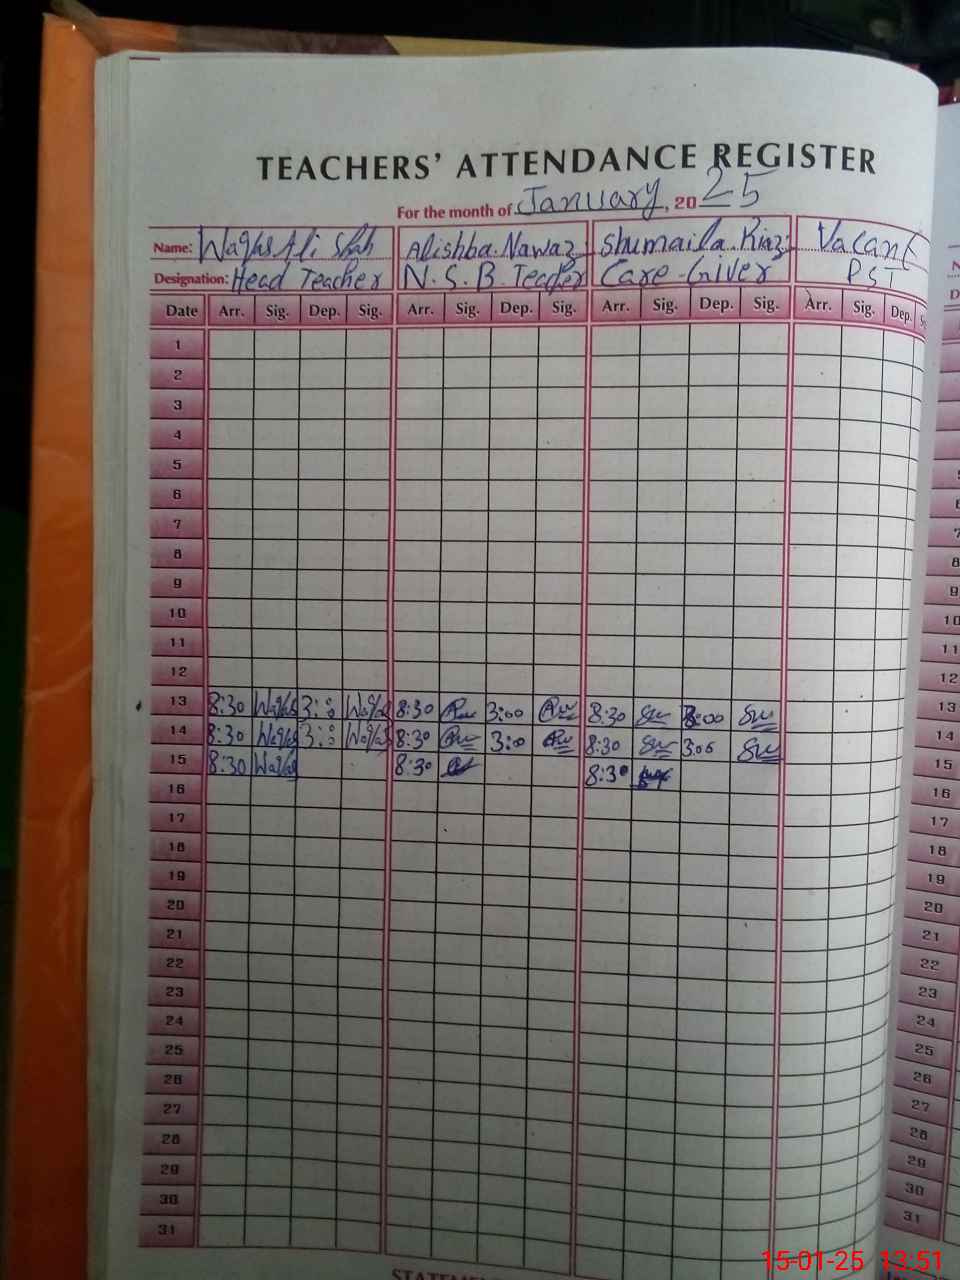 TEACHERS' ATTENDANCE REGISTER
For the month of January, 2025
Name: Waqas Ali Shah Alishba Nawaz Shumaila Riaz Vacant
Designation: Head Teacher N.S.B. Teacher Care-Giver PST
Date Arr. Sig. Dep. Sig. Arr. Sig. Dep. Sig. Arr. Sig. Dep. Sig. Arr. Sig. Dep.
1
2
3
4
5
6
7
8
9
10
11
12
13 8:30 Waqas 3:00 Waqas 8:30 3:00 8:30 3:00
14 8:30 Waqas 3:00 Waqas 8:30 3:00 8:30 3:00
15 8:30 Waqas 8:30 8:30
16
17
18
19
20
21
22
23
24
25
26
27
28
29
30
31
7
8
9
10
11
12
13
14
15
16
17
18
19
20
21
22
23
24
25
26
27
28
29
30
31
15-01-25 13:51